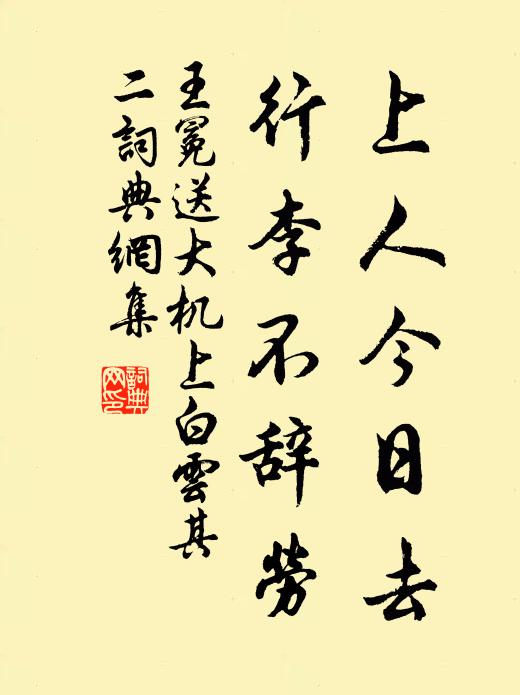 上人今日去
行李不辞勞
王冕送大机上白雲其
二詞典網集
詞典
网印